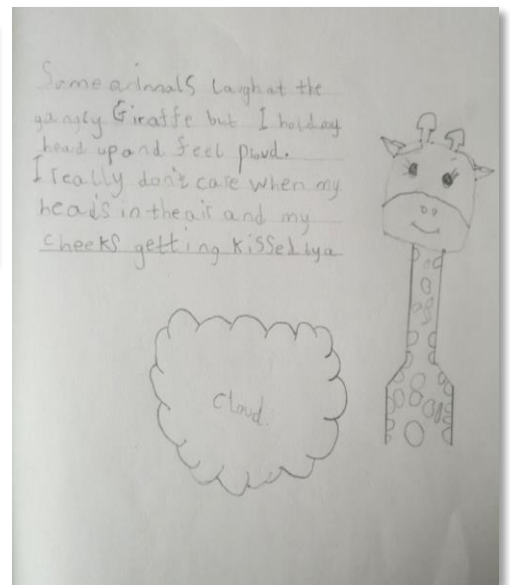 Some animals laugh at the
gangly Giraffe but I hold my
head up and feel proud.
I really don't care when my
heads in the air and my
cheeks getting kissed by a
cloud.